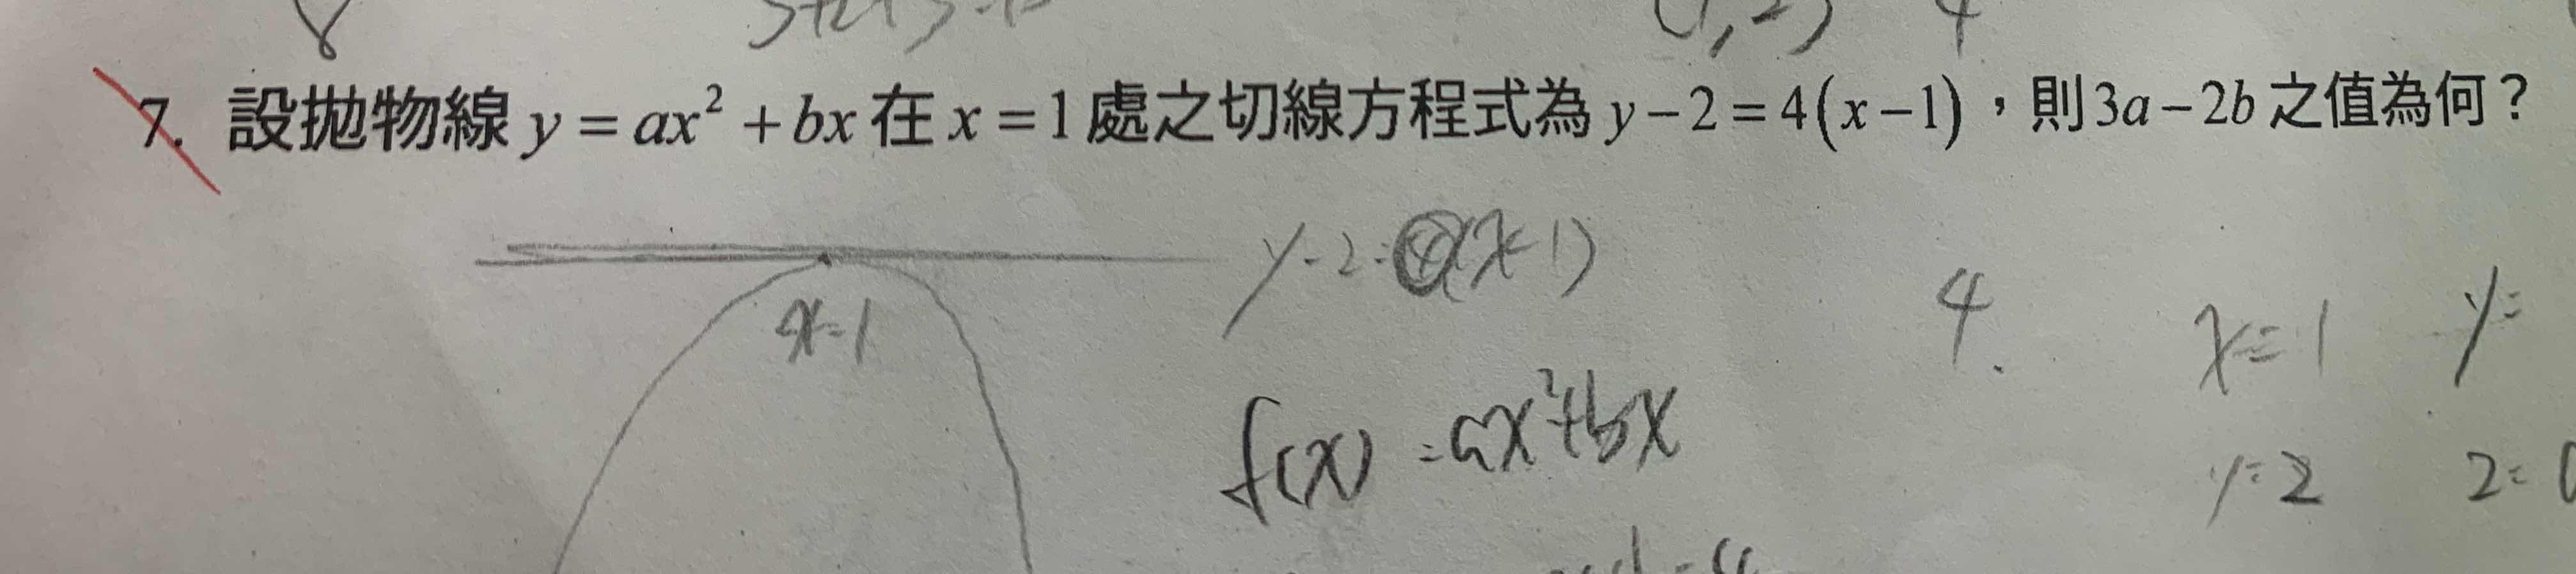 (1,2) 4
7. 設拋物線 y = ax² + bx 在 x = 1 處之切線方程式為 y − 2 = 4(x − 1)，則 3a − 2b 之值為何？
y-2=4(x-1)
x=1
4.
x=1 y=
f(x)=ax²+bx
y=2 2=